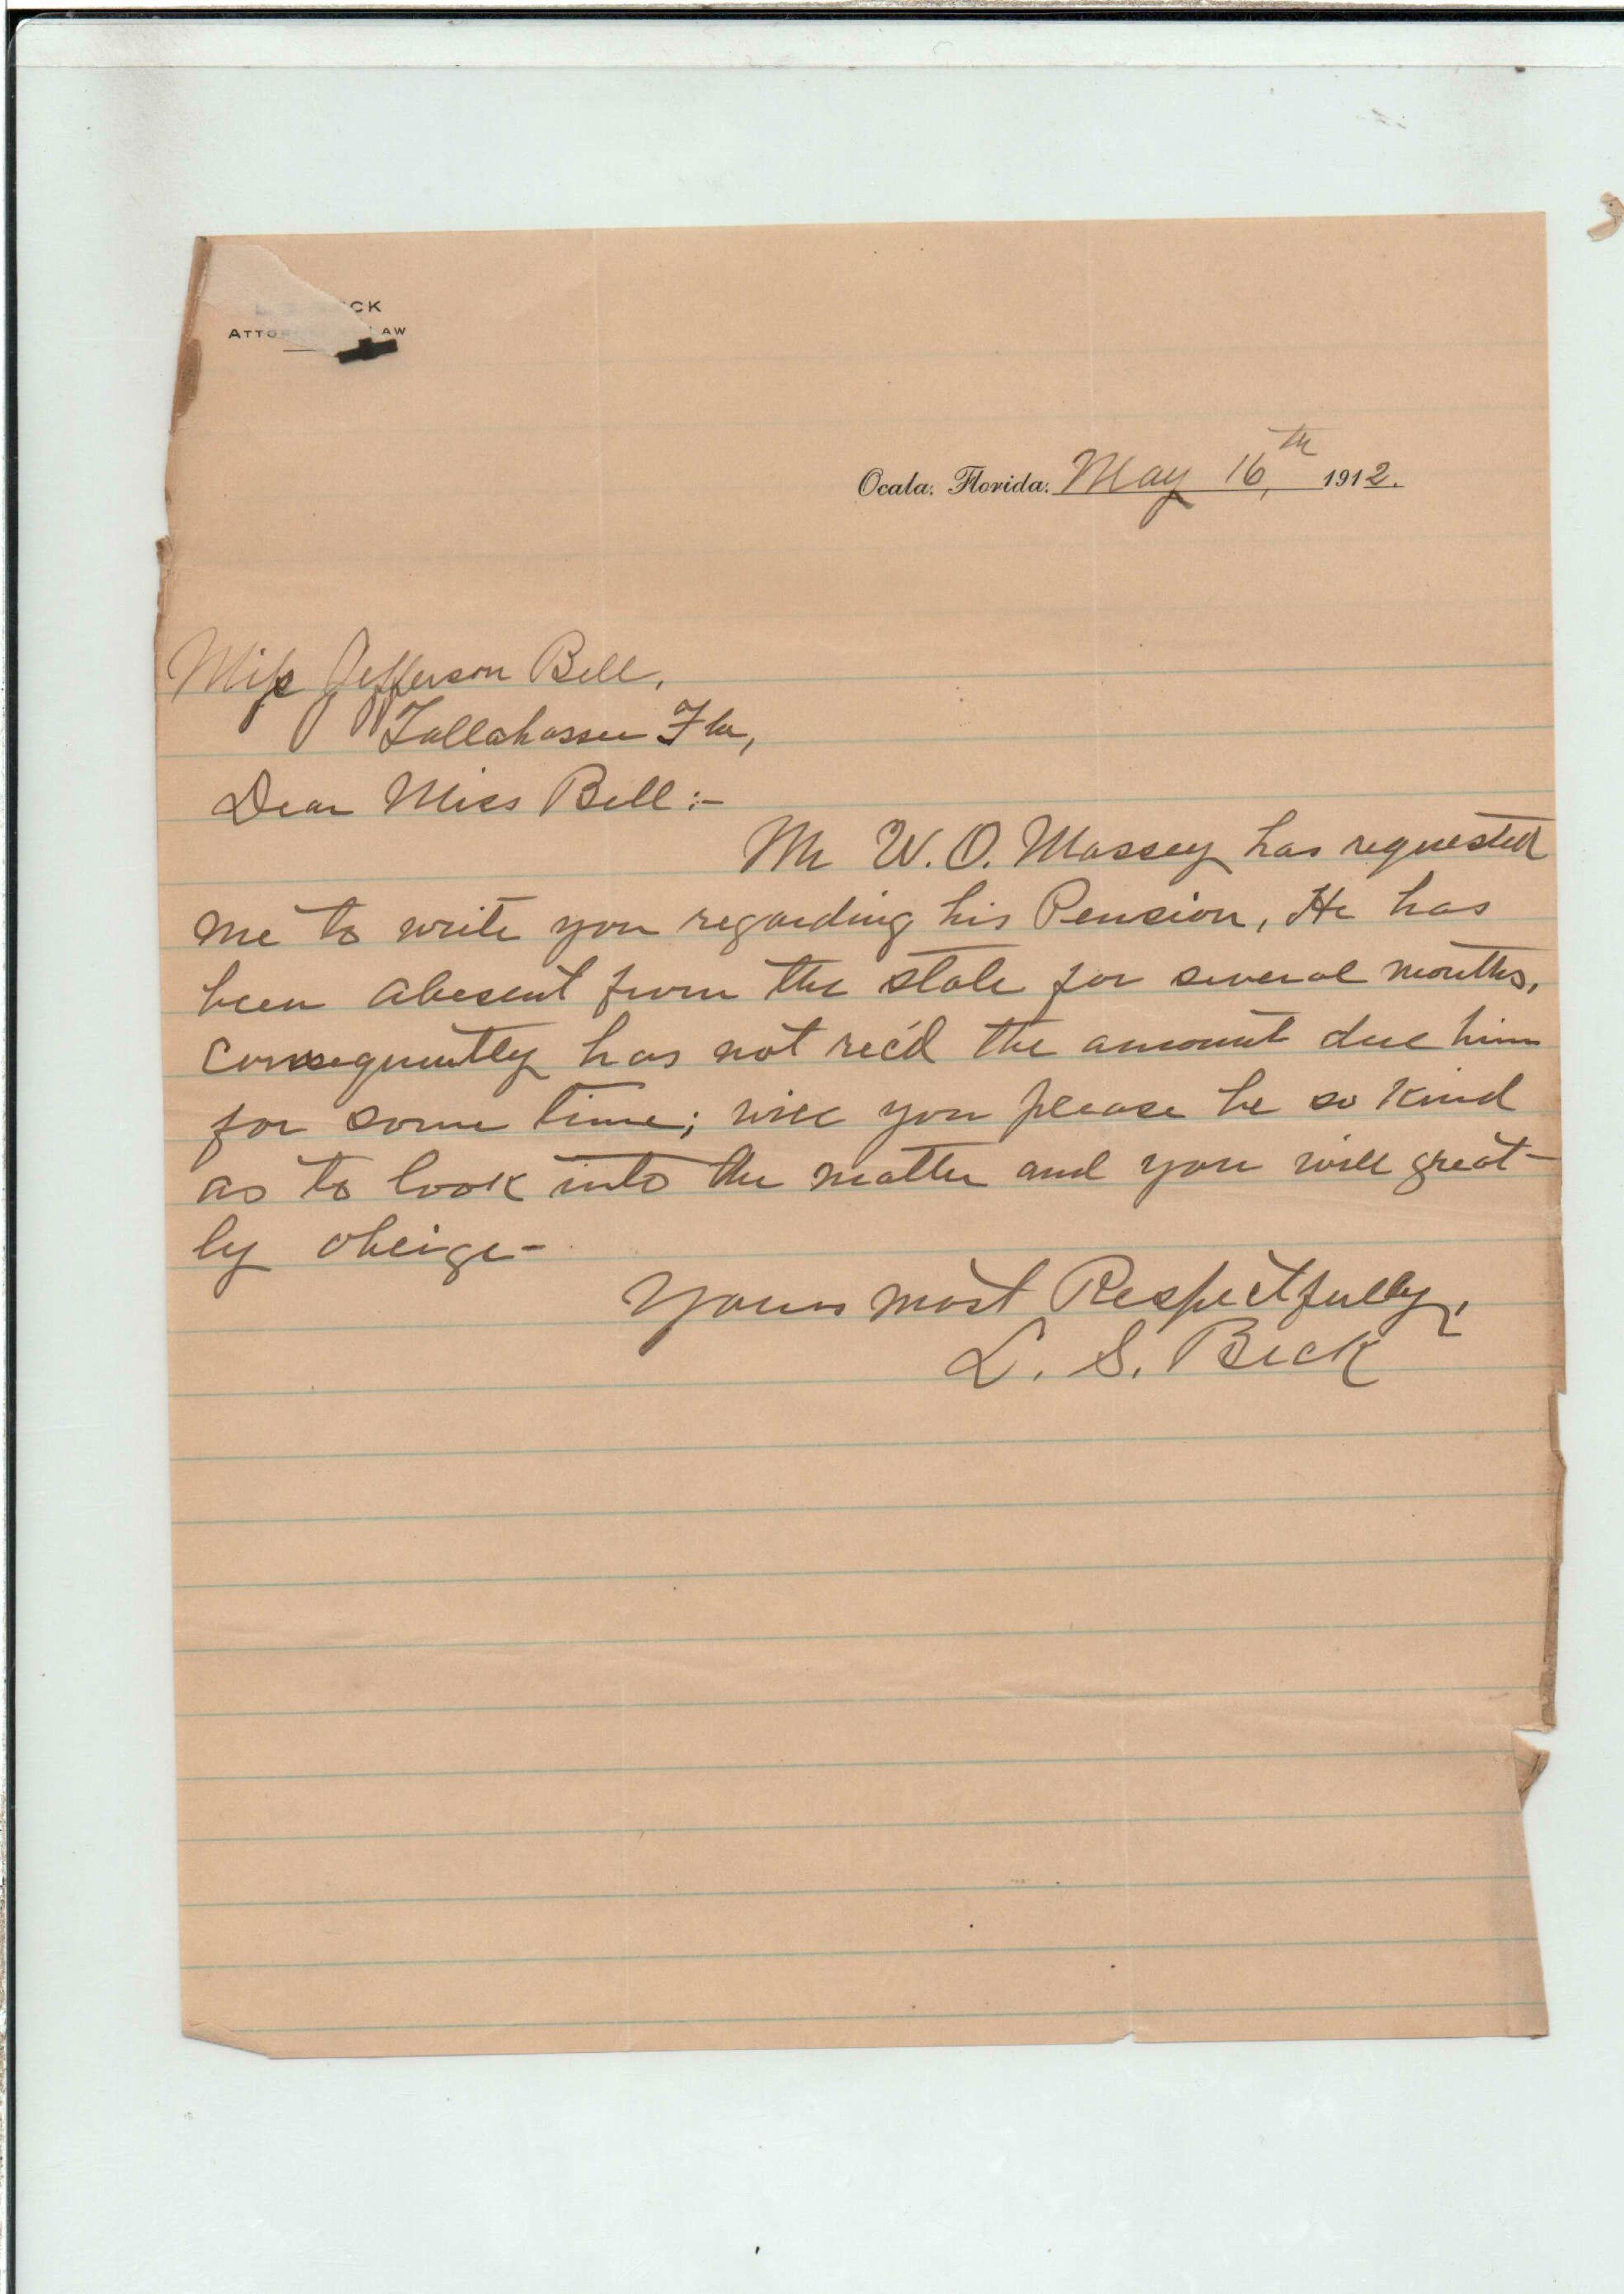 L. S. BECK
ATTORNEY AT LAW
Ocala. Florida. May 16th, 1912.
Miss Jefferson Bell,
Tallahassee Fla,
Dear Miss Bell:-
Mr W. O. Massey has requested
me to write you regarding his Pension, He has
been abesent from the state for several months,
Consequently has not rec'd the amount due him
for some time; will you please be so kind
as to look into the matter and you will great-
ly oblige-
Yours most Respectfully,
L. S. Beck